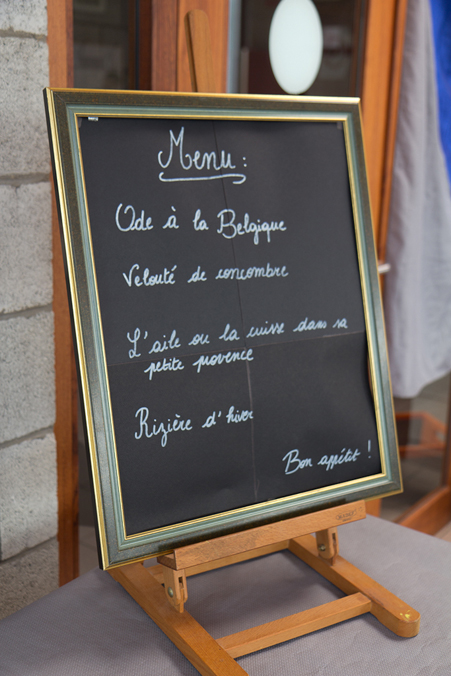 Menu :
Ode à la Belgique
Velouté de concombre
L'aile ou la cuisse dans sa
petite provence
Rizière d'hiver
Bon appétit !